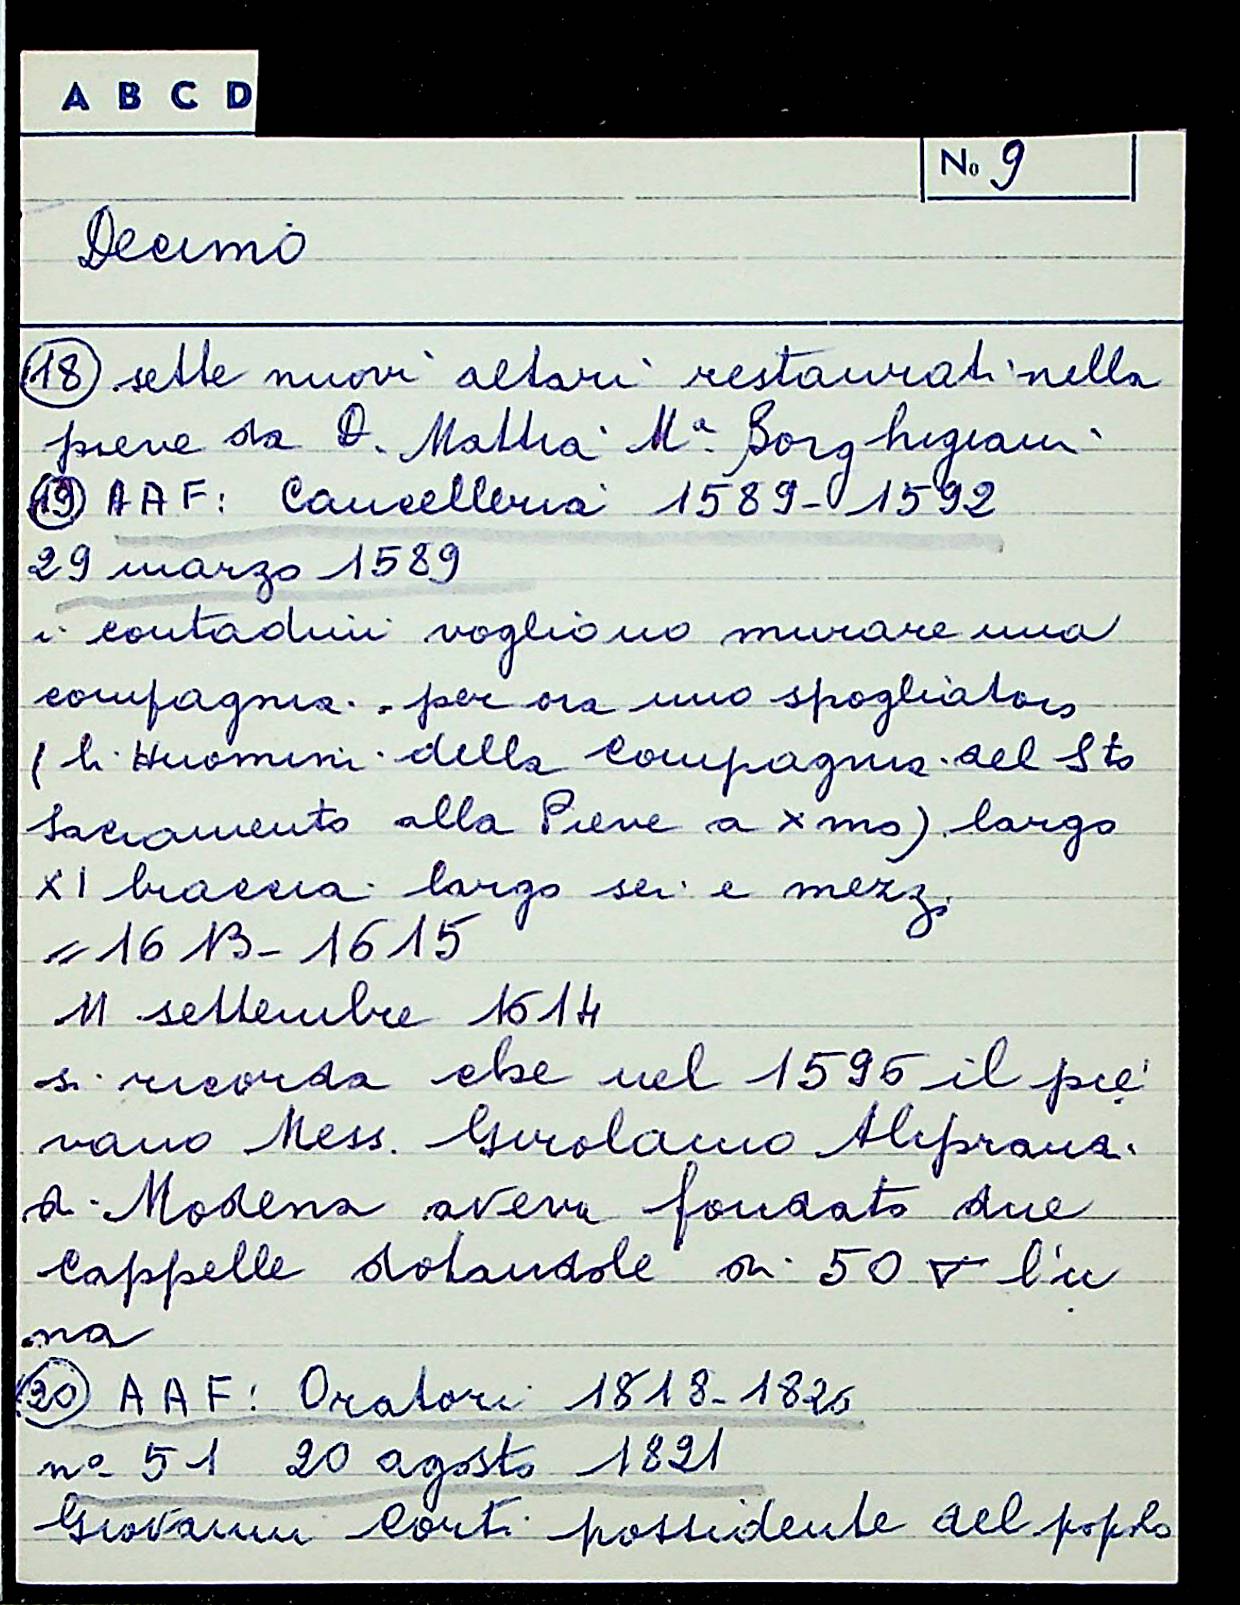 A B C D
No 9
Decimo
(18) sette nuovi altari restaurati nella
pieve da D. Mattia Ma. Borghigiani
(19) AAF: Cancelleria 1589-1592
29 marzo 1589
i contadini vogliono murare una
compagnia. per ora uno spogliatoio
(li Huomini della Compagnia del Sto
Sacramento alla Pieve a Xmo) largo
XI braccia largo sei e mezzo
= 1613-1615
11 settembre 1614
si ricorda che nel 1596 il pie
vano Mess. Girolamo
di Modena aveva fondato due
Cappelle dotandole di 50 ▽ l'u
na
(20) AAF: Oratori 1818-1826
no 51 20 agosto 1821
Giovanni Corti possidente del popolo